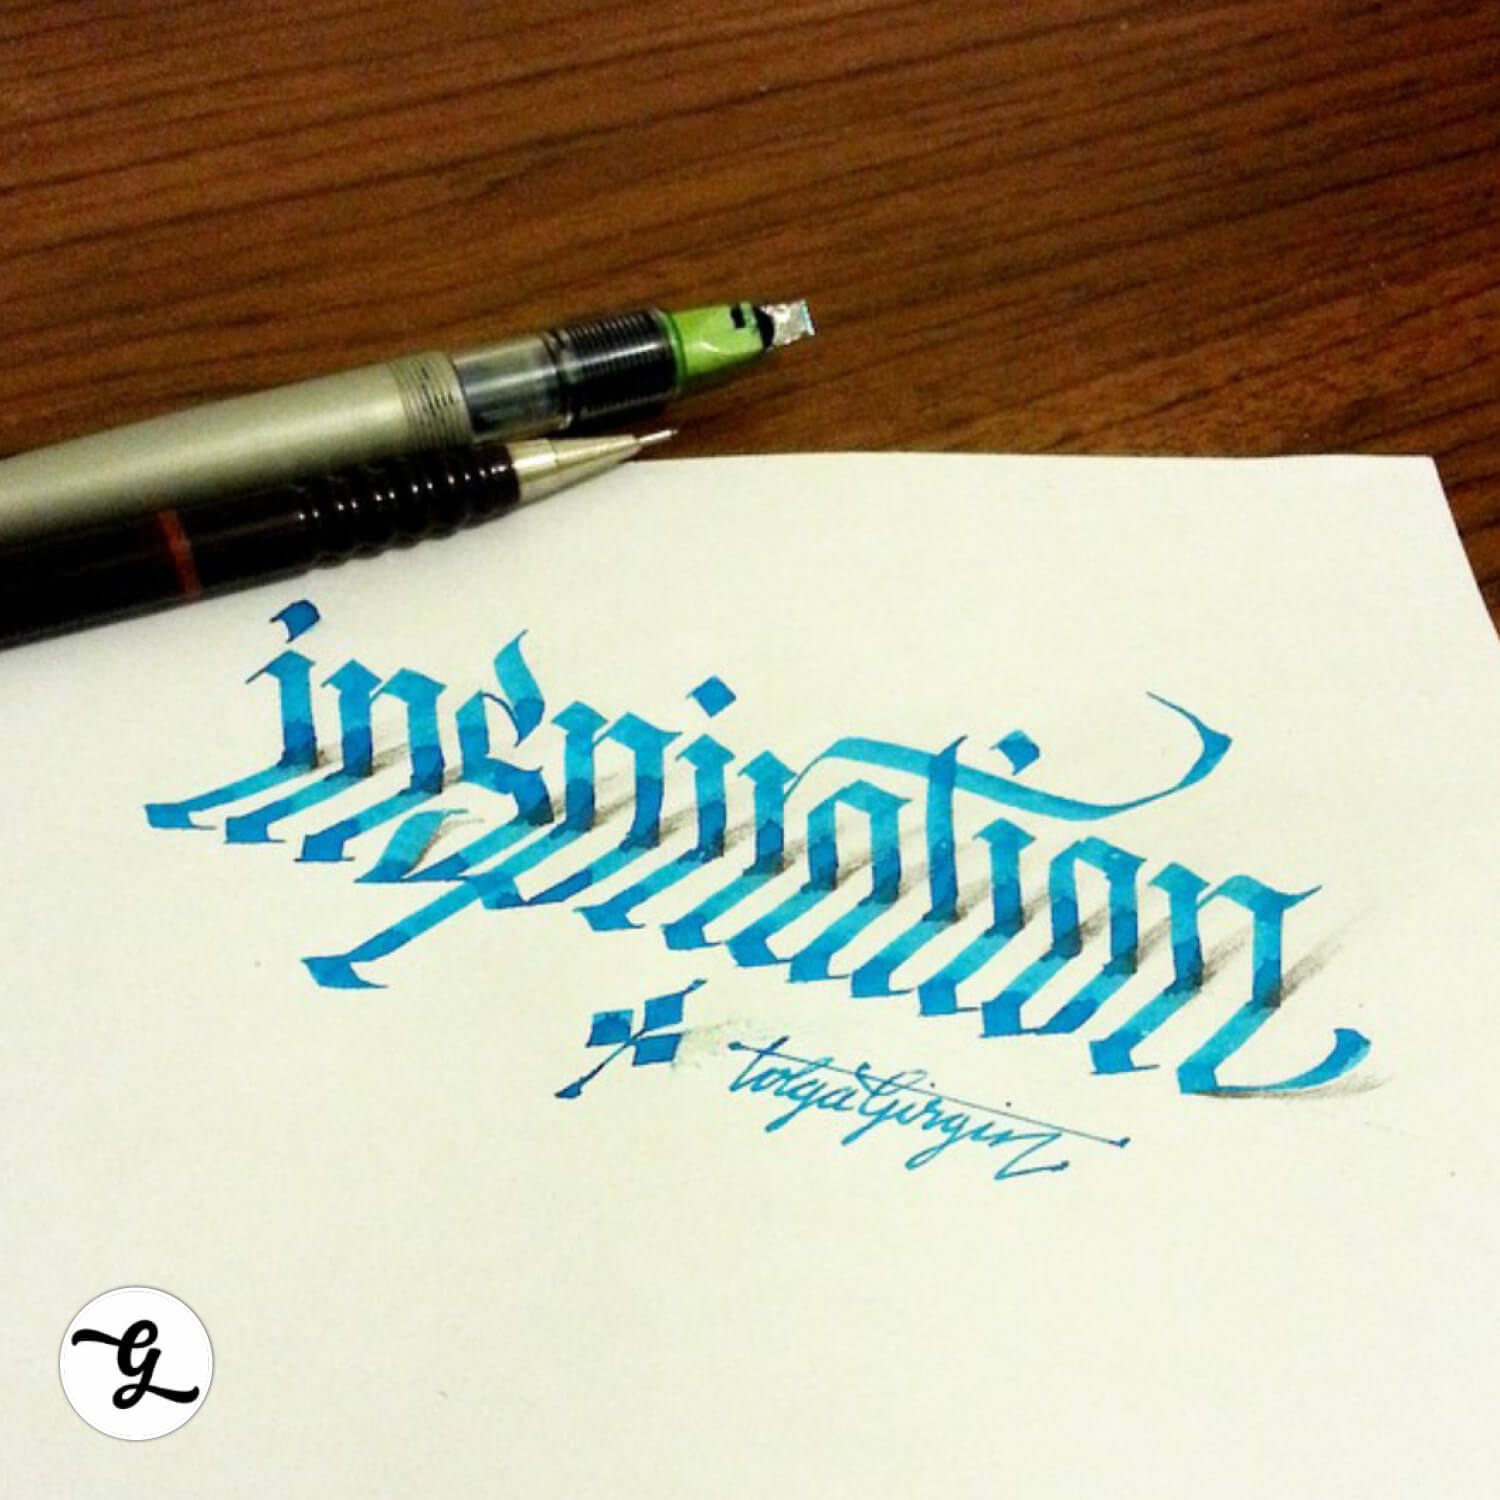 inspiration
tolga Girgin
G